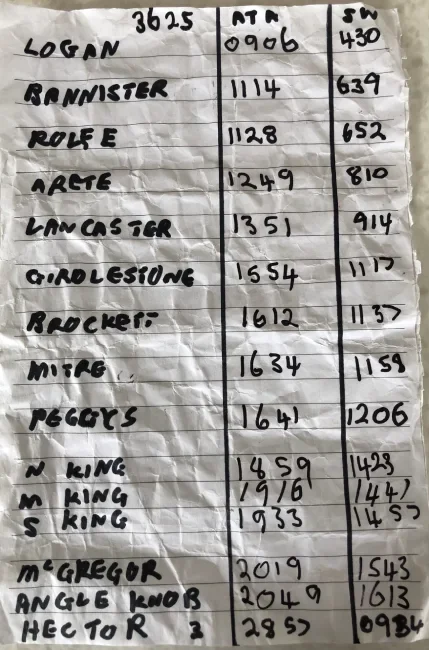 3625 ATA SW
LOGAN 0906 430
BANNISTER 1114 639
ROLFE 1128 652
ARETE 1249 810
LANCASTER 1351 914
GIRDLESTONE 1554 1117
BROCKETT 1612 1137
MITRE 1634 1158
PEGGYS 1641 1206
N KING 1859 1423
M KING 1916 1441
S KING 1933 1457
McGREGOR 2019 1543
ANGLE KNOB 2049 1613
HECTOR 2857